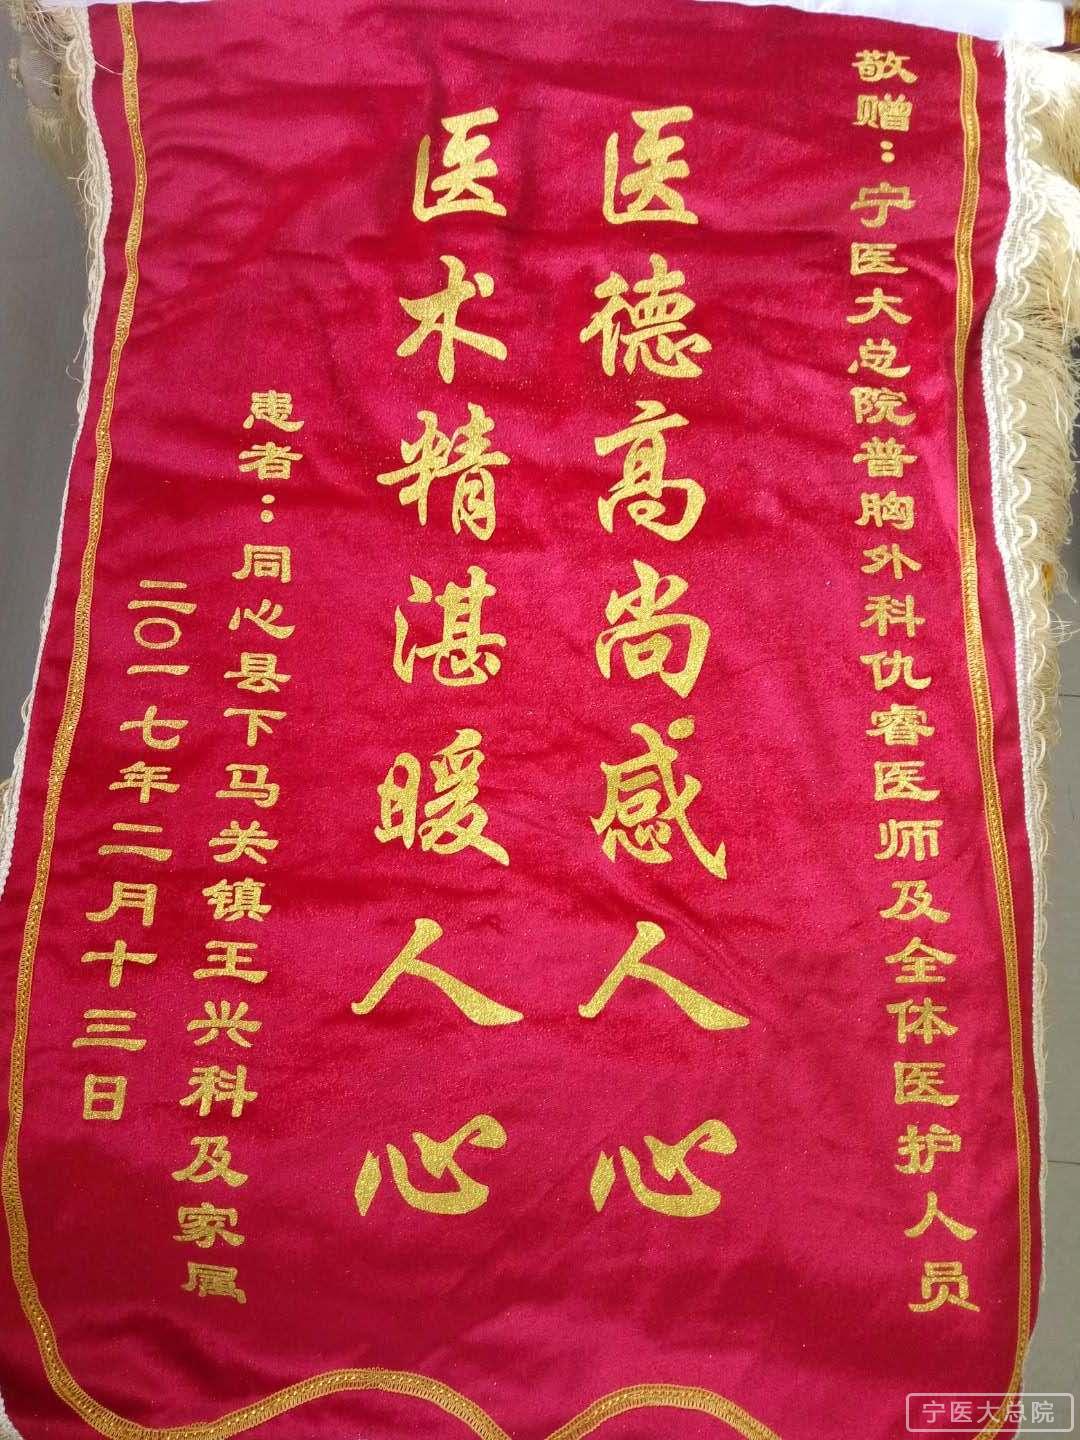 敬赠：宁医大总院普胸外科仇睿医师及全体医护人员
医德高尚感人心
医术精湛暖人心
患者：同心县下马关镇王兴科及家属
二〇一七年二月十三日
宁医大总院